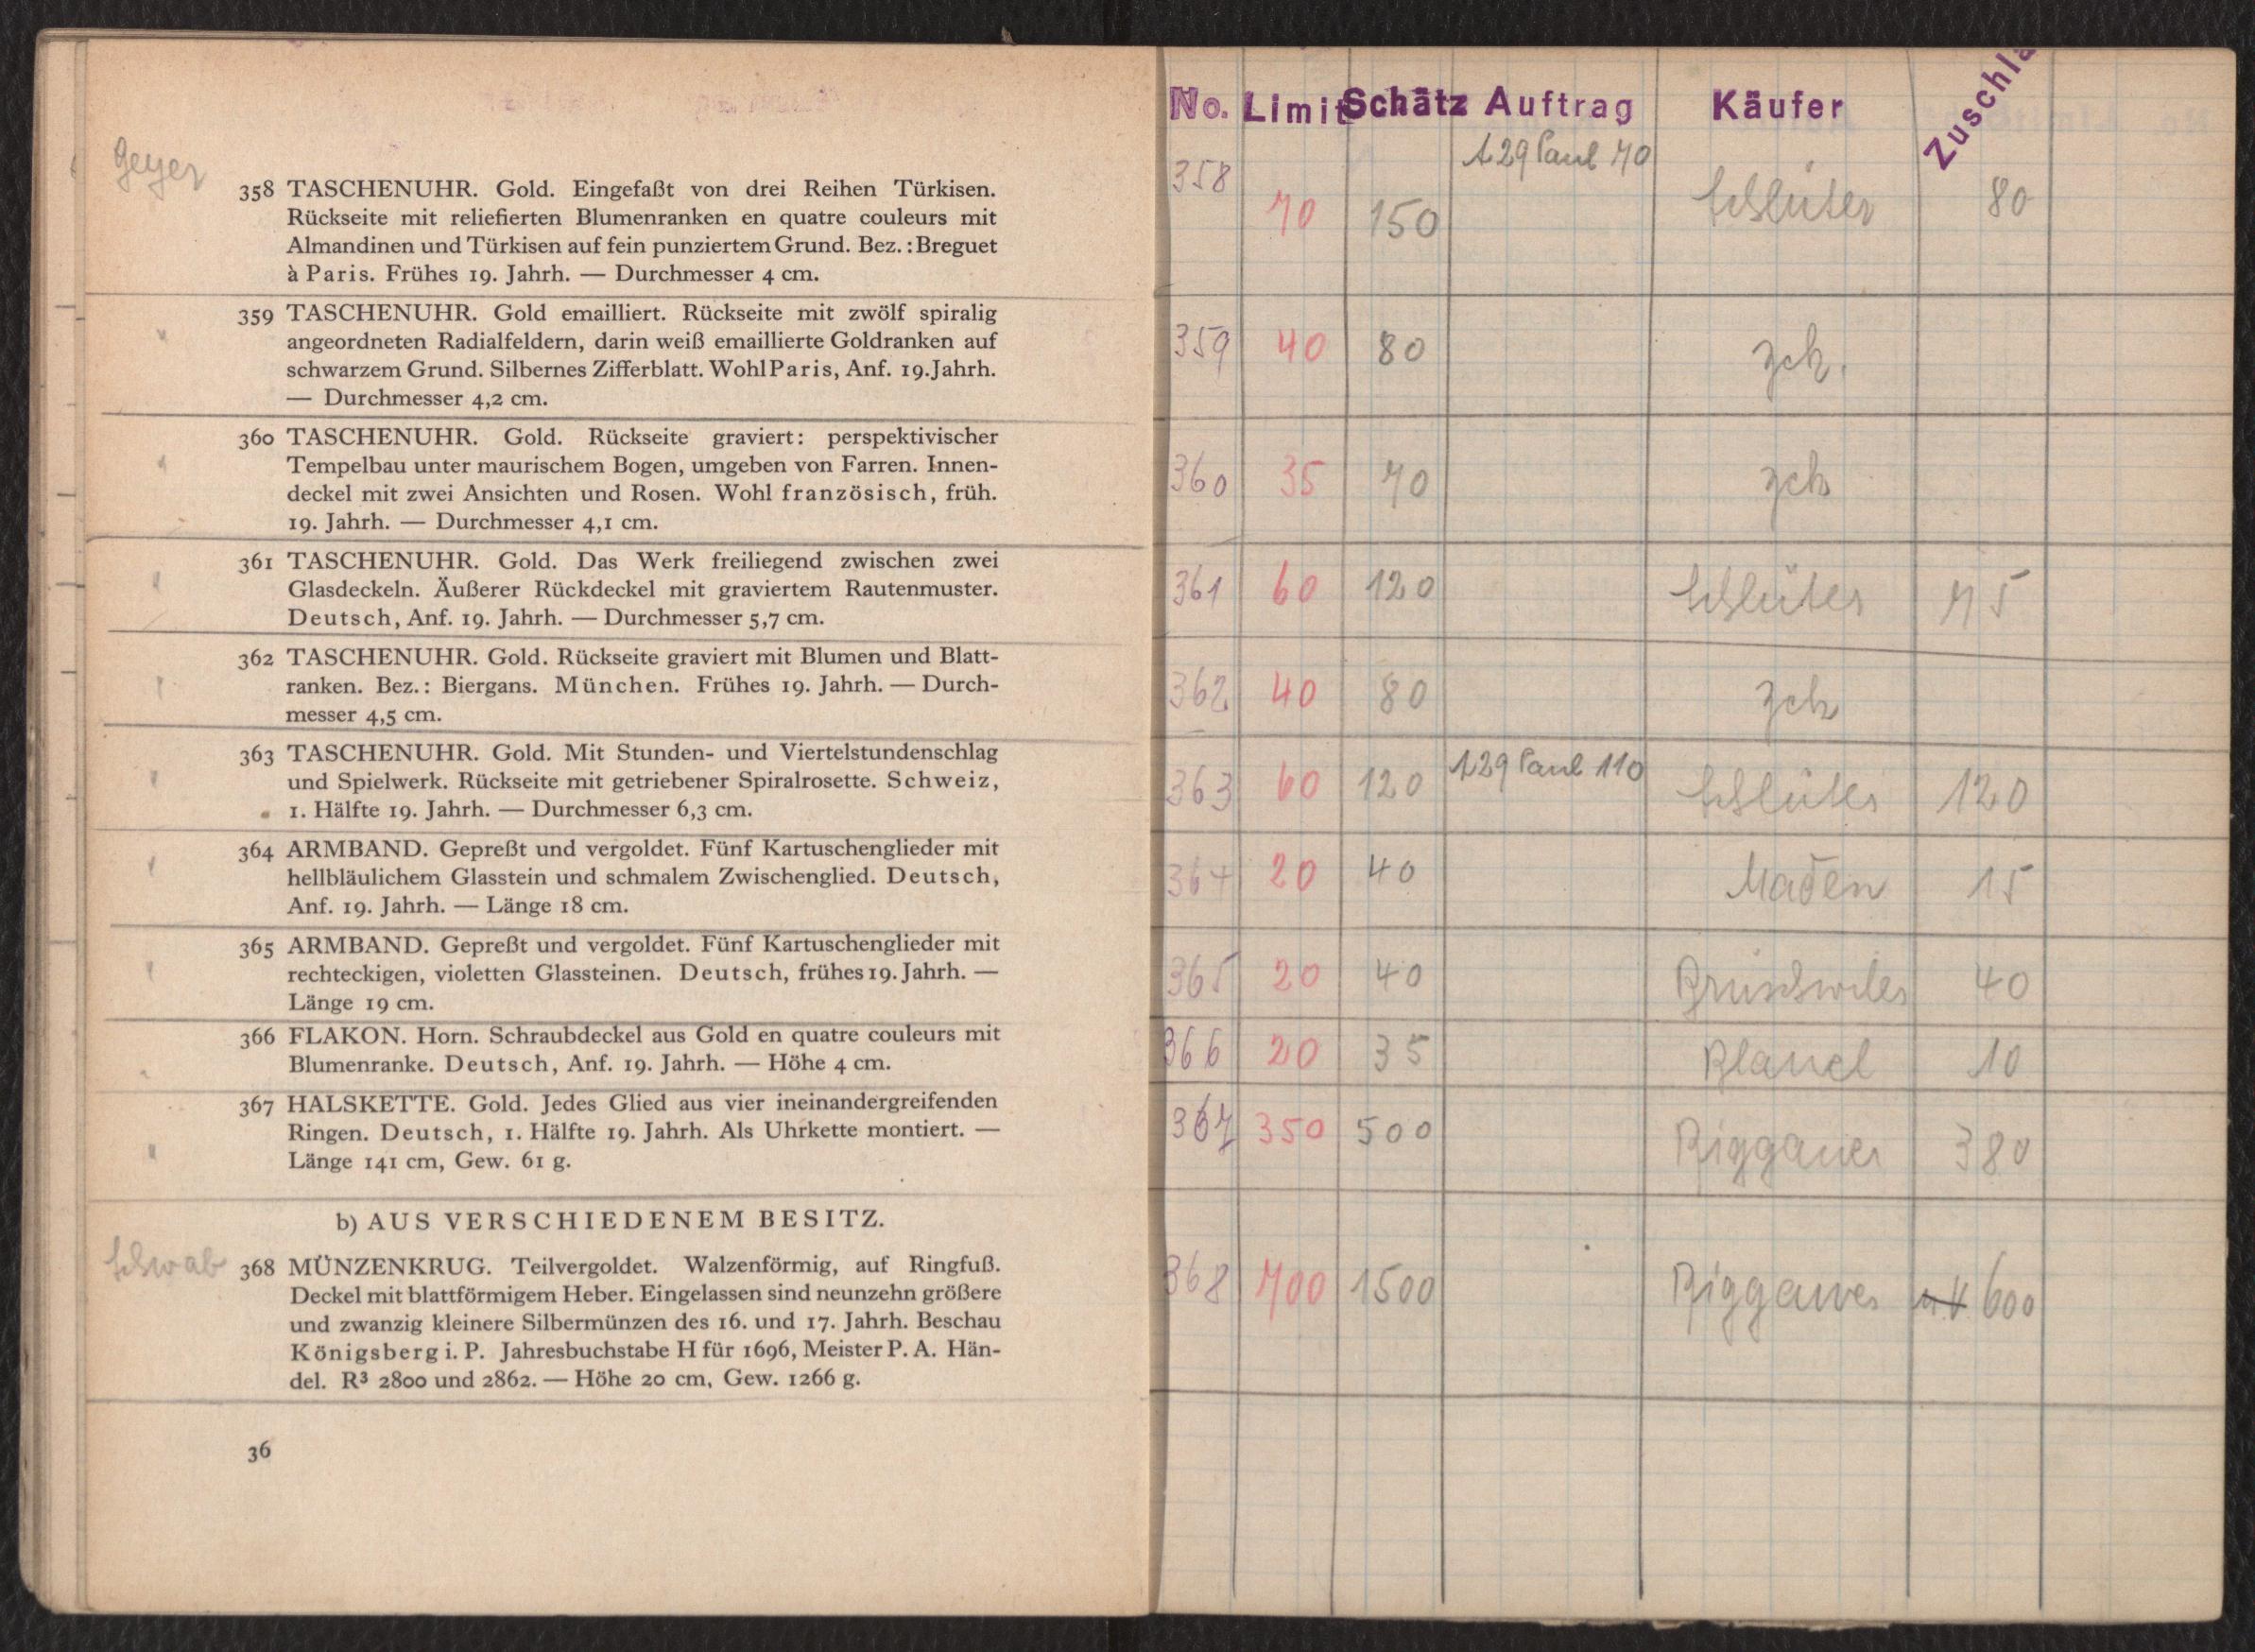 Geyer
358 TASCHENUHR. Gold. Eingefaßt von drei Reihen Türkisen.
Rückseite mit reliefierten Blumenranken en quatre couleurs mit
Almandinen und Türkisen auf fein punziertem Grund. Bez.: Breguet
à Paris. Frühes 19. Jahrh. — Durchmesser 4 cm.
359 TASCHENUHR. Gold emailliert. Rückseite mit zwölf spiralig
angeordneten Radialfeldern, darin weiß emaillierte Goldranken auf
schwarzem Grund. Silbernes Zifferblatt. Wohl Paris, Anf. 19. Jahrh.
— Durchmesser 4,2 cm.
360 TASCHENUHR. Gold. Rückseite graviert: perspektivischer
Tempelbau unter maurischem Bogen, umgeben von Farren. Innen-
deckel mit zwei Ansichten und Rosen. Wohl französisch, früh.
19. Jahrh. — Durchmesser 4,1 cm.
361 TASCHENUHR. Gold. Das Werk freiliegend zwischen zwei
Glasdeckeln. Äußerer Rückdeckel mit graviertem Rautenmuster.
Deutsch, Anf. 19. Jahrh. — Durchmesser 5,7 cm.
362 TASCHENUHR. Gold. Rückseite graviert mit Blumen und Blatt-
ranken. Bez.: Biergans. München. Frühes 19. Jahrh. — Durch-
messer 4,5 cm.
363 TASCHENUHR. Gold. Mit Stunden- und Viertelstundenschlag
und Spielwerk. Rückseite mit getriebener Spiralrosette. Schweiz,
1. Hälfte 19. Jahrh. — Durchmesser 6,3 cm.
364 ARMBAND. Gepreßt und vergoldet. Fünf Kartuschenglieder mit
hellbläulichem Glasstein und schmalem Zwischenglied. Deutsch,
Anf. 19. Jahrh. — Länge 18 cm.
365 ARMBAND. Gepreßt und vergoldet. Fünf Kartuschenglieder mit
rechteckigen, violetten Glassteinen. Deutsch, frühes 19. Jahrh. —
Länge 19 cm.
366 FLAKON. Horn. Schraubdeckel aus Gold en quatre couleurs mit
Blumenranke. Deutsch, Anf. 19. Jahrh. — Höhe 4 cm.
367 HALSKETTE. Gold. Jedes Glied aus vier ineinandergreifenden
Ringen. Deutsch, 1. Hälfte 19. Jahrh. Als Uhrkette montiert. —
Länge 141 cm, Gew. 61 g.
b) AUS VERSCHIEDENEM BESITZ.
Schwab
368 MÜNZENKRUG. Teilvergoldet. Walzenförmig, auf Ringfuß.
Deckel mit blattförmigem Heber. Eingelassen sind neunzehn größere
und zwanzig kleinere Silbermünzen des 16. und 17. Jahrh. Beschau
Königsberg i. P. Jahresbuchstabe H für 1696, Meister P. A. Hän-
del. R³ 2800 und 2862. — Höhe 20 cm, Gew. 1266 g.
36
No. Limit Schätz Auftrag Käufer Zuschla
A29 Paul 70
358 70 150 Schlüter 80
359 40 80 zck.
360 35 70 zck
361 60 120 Schlüter 75
362 40 80 zck
363 60 120 A29 Paul 110 Schlüter 120
364 20 40 15
365 20 40 40
366 20 35 10
367 350 500 Riggauer 380
368 700 1500 Riggauer 600